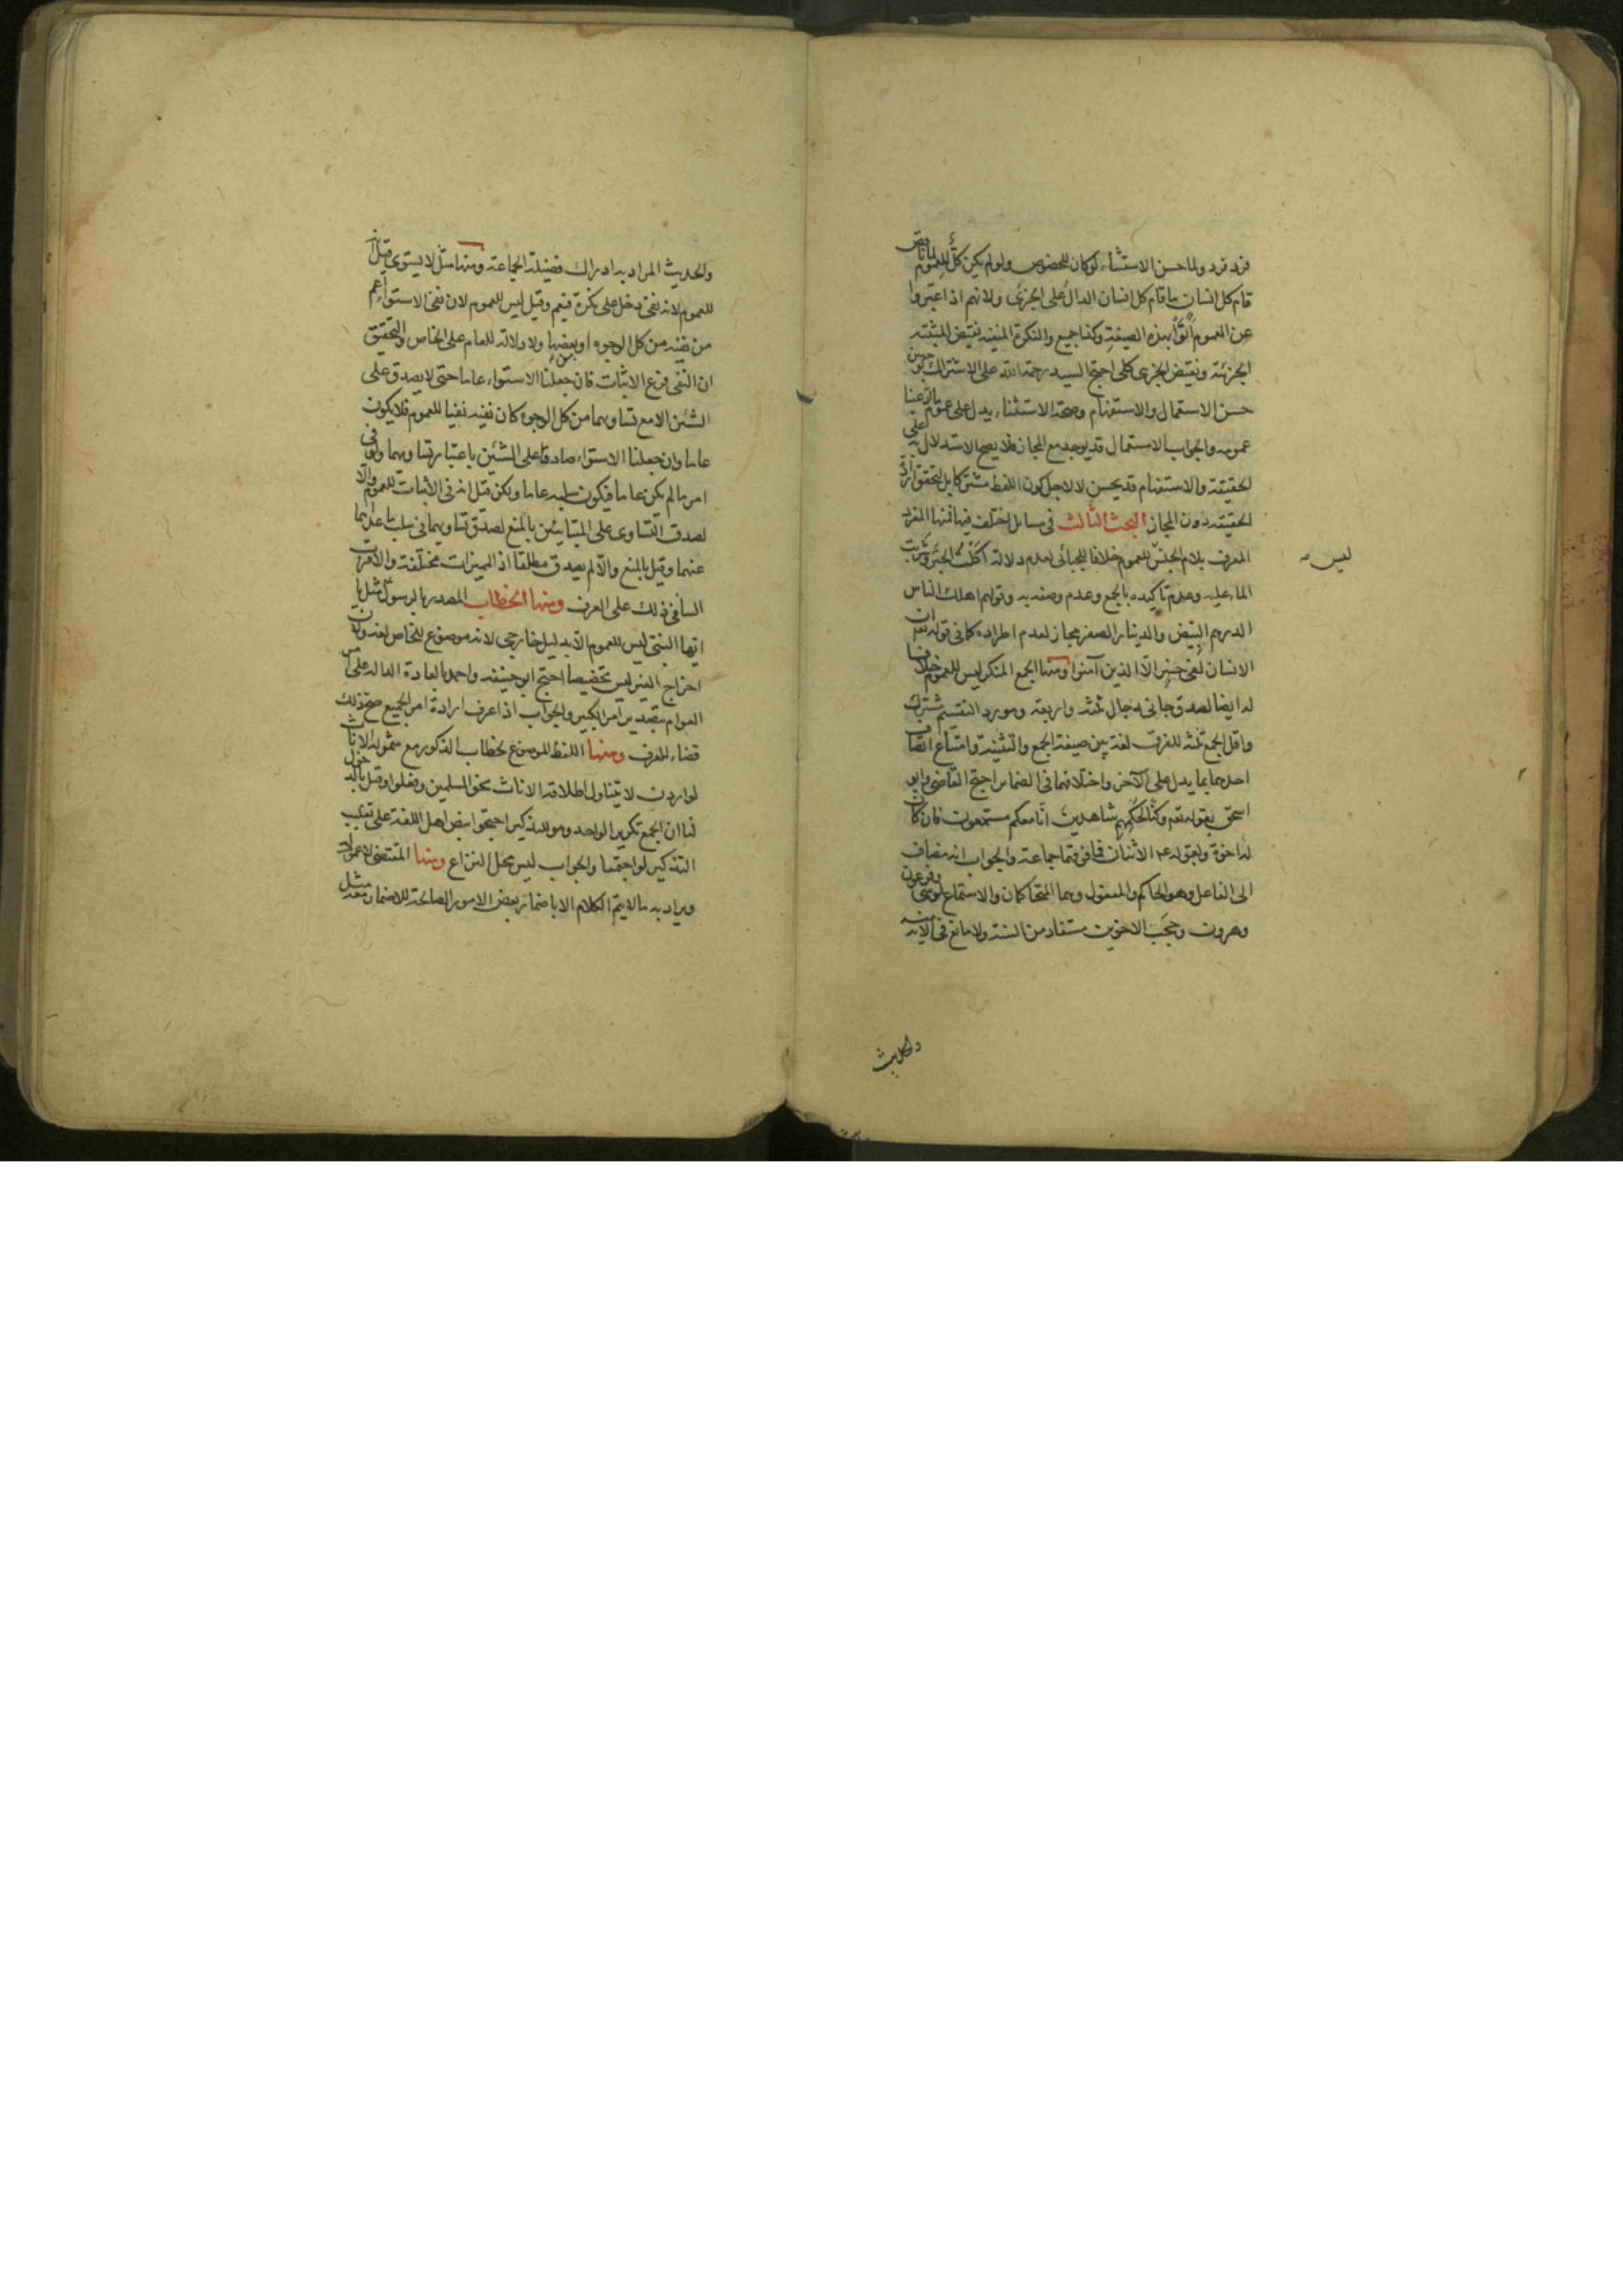 فرد فرد ولما حسن الاستثناء لو كان للخصوص ولو لم يكن كل للعموم لما ناقض
قام كل انسان ما قام كل انسان الدال على الجزئى ولانهم اذا عبروا
عن العموم اتوا بهذه الصيغة وكذا جميع والنكرة المنفية نقيض المثبتة
الجزئية ونقيض الجزئى كلى احتج السيد رحمة الله على الاشتراك بحسن
حسن الاستعمال والاستفهام وصحة الاستثناء يدل على عموم
عمومه والجواب الاستعمال قد يوجد مع المجاز فلا يصح الاستدلال به على
الحقيقة والاستفهام قد يحسن لا لاجل كون اللفظ مشتركا بل لتحقق ارادة
الحقيقة دون المجاز البحث الثالث فى مسايل اختلف فيها فمنها المفرد
المعرف بلام الجنس للعموم خلافا للجبائى لعدم دلالة اكلت الخبز وشربت
ليس
الماء عليه وعدم تاكيده بالجمع وعدم وصفه به وقولهم اهلك الناس
الدرهم البيض والدينار الصفر مجاز لعدم اطراده كما فى قوله تعم ان
الانسان لفى خسر الا الذين آمنوا ومنها الجمع المنكر ليس للعموم خلافا
لنا ايضا لصدق جانى رجال ثلثه واربعة ومورد التقسيم مشترك
واقل الجمع ثلثه للفرق لغة بين صيغة الجمع والتثنية وامتناع اتصاف
احدهما بما يدل على الآخر واختلافهما فى الضمائر احتج القاضى وابو
اسحق بقوله تعم وكنا لحكمهم شاهدين انا معكم مستمعون فان كان
له اخوة ولقوله عم الاثنان فما فوقهما جماعة والجواب انه مضاف
الى الفاعل وهو الحاكم والمفعول وهما المتحاكمان والاستماع لموسى وفرعون
وهرون وحجب الاخوين مستفاد من السنة ولا مانع فى الاية منه
والحديث
والحديث المراد به ادراك فضيلة الجماعة ومنها مثل لا يستوى قيل انه
للعموم لانه نفى دخل على نكرة فيعم وقيل ليس للعموم لان نفى الاستواء اعم
من نفيه من كل الوجوه او بعضها ولا دلالة للعام على الخاص والتحقيق
ان النفى فرع الاثبات فان جعلنا الاستواء عاما حتى لا يصدق على
الشيئين الا مع تساويهما من كل الوجوه كان نفيه نفيا للعموم فلا يكون
عاما وان جعلنا الاستواء صادقا على الشيئين باعتبار تساويهما ولو فى
امر ما لم يكن عاما فيكون سلبه عاما ولكن قيل انه فى الاثبات للعموم والا
لصدق التساوى على المتباينين بالمنع لصدق تساويهما فى سلب ما عداهما
عنهما وقيل بالمنع والا لم يصدق مطلقا اذ المميزات مختلفة والاقرب
السافى ذلك على العرف ومنها الخطاب المصدر بالرسول مثل يا
ايها النبى ليس للعموم الا بدليل خارجى لانه موضوع للخاص لغة
اخراج الغير ليس تخصيصا احتج ابو حنيفه واحمد بالعادة الدالة على امر
العوام بتصدير امر الكبير والجواب اذا عرف ارادة امر الجميع صح ذلك
قضاء للعرف ومنها اللفظ الموضوع لخطاب الذكور مع شموله الاناث
لو اردن لا يتناول اطلاقه الاناث نحو المسلمين وفعلوا وقيل بالدخول
لنا ان الجمع تكرير الواحد وهو للتذكير احتجوا بنص اهل اللغة على تغليب
التذكير لو اجتمعا والجواب ليس محل النزاع ومنها المقتضى لا عموم له
ويراد به ما لا يتم الكلام الا باضمار بعض الامور الصالحة للاضمار معه مثل